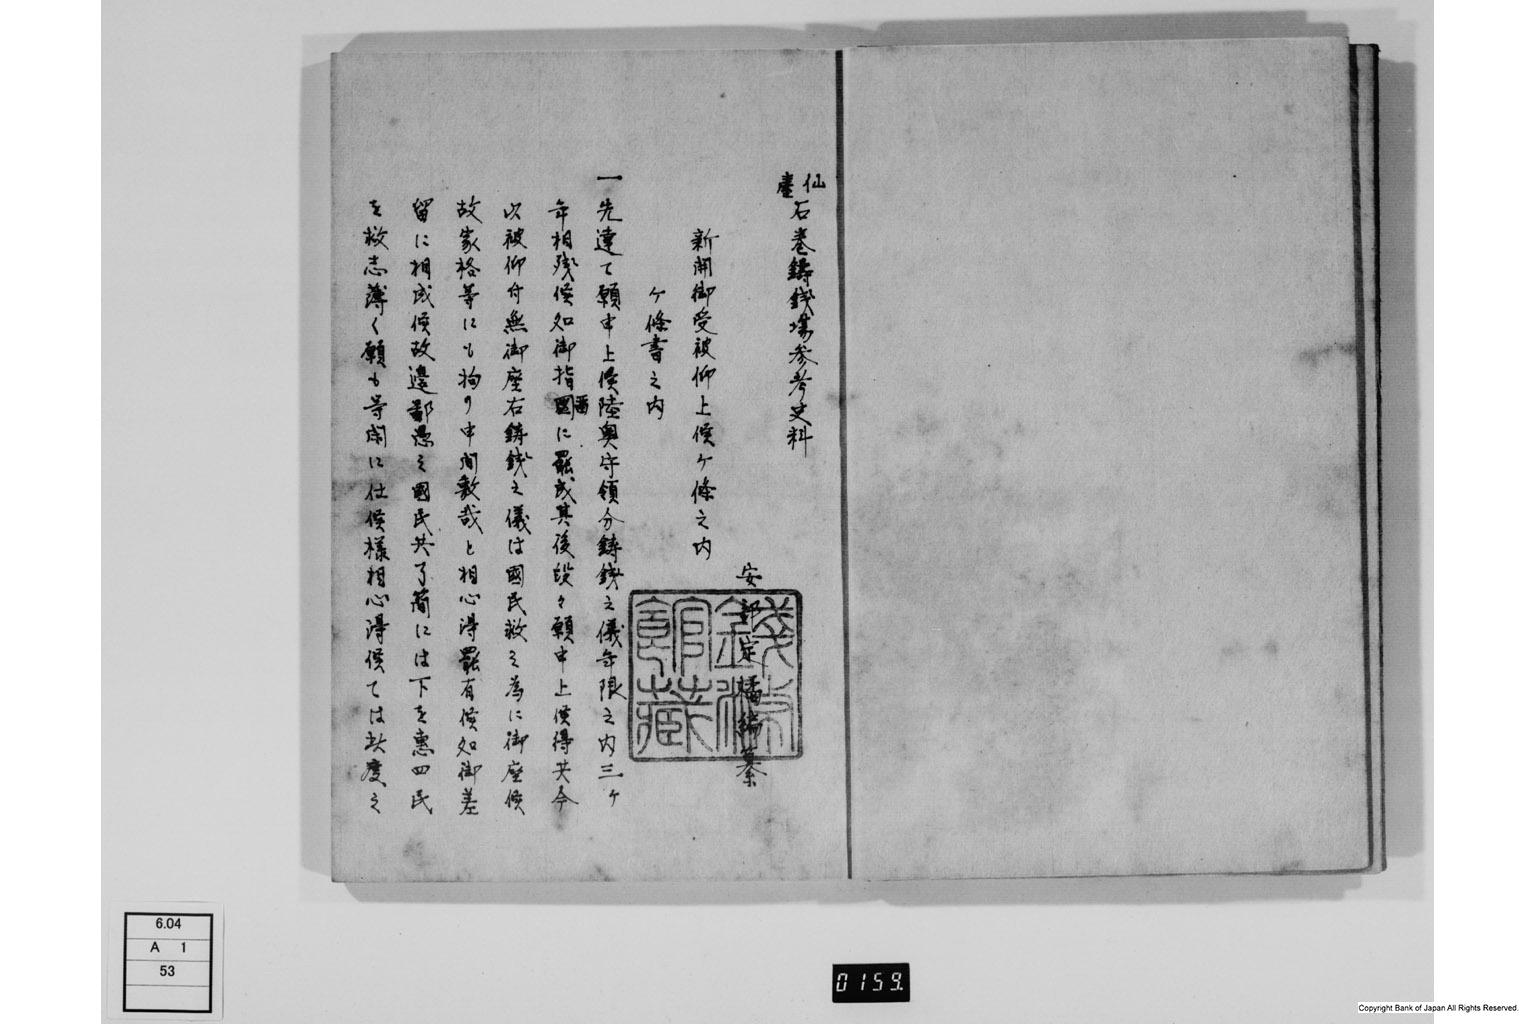 仙臺石巻鋳銭場参考史料
安部定橘編纂
新開御受被仰上候ケ條之内
ケ條書之内
一先達て願申上候陸奥守領分鋳銭之儀年限之内三ケ
年相残候如御指圖に罷成其後段々願申上候得共今
以被仰付無御座右鋳銭之儀は國民救之為に御座候
故家格等にも拘り申間敷哉と相心得罷有候如御差
留に相成候故邊鄙愚之國民共了簡には下を惠四民
を救志薄く願も等閑に仕候様相心得候ては此度之
錢幣館藏
6.04
A 1
53
0159.
Copyright Bank of Japan All Rights Reserved.